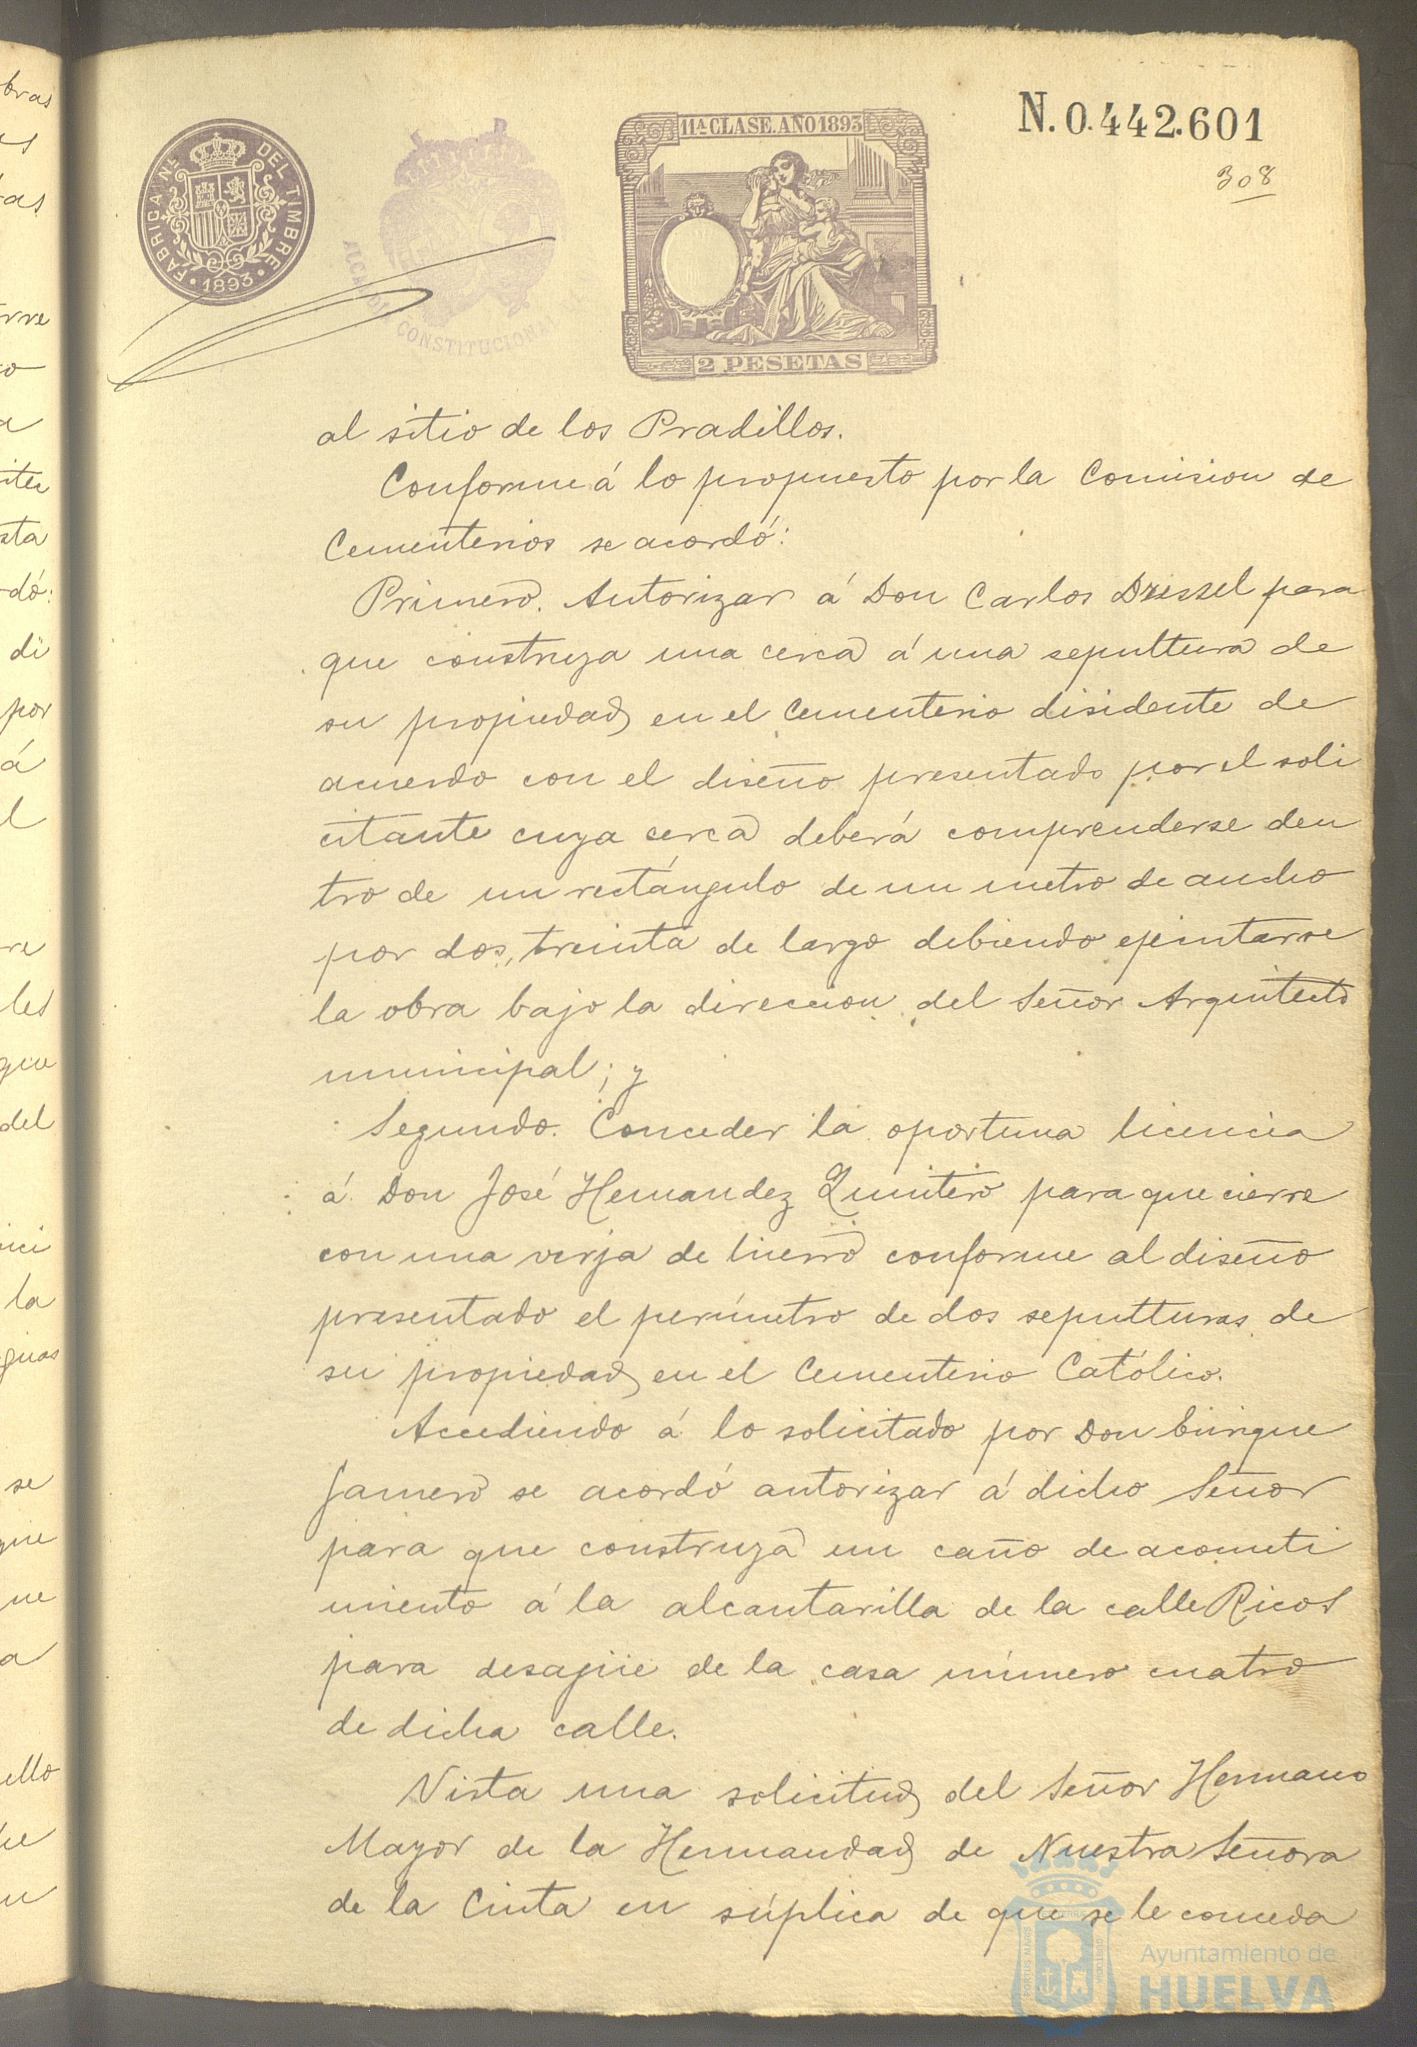 FABRICA NL. DEL TIMBRE
1893
ALCALDIA CONSTITUCIONAL
11ª CLASE. AÑO 1893
2 PESETAS
N.0.442.601
308
al sitio de los Pradillos.
Conforme á lo propuesto por la Comision de
Cementerios se acordó:
Primero. Autorizar á Don Carlos Drissel para
que construya una cerca á una sepultura de
su propiedad en el Cementerio disidente de
acuerdo con el diseño presentado por el soli
citante cuya cerca deberá comprenderse den
tro de un rectángulo de un metro de ancho
por dos, treinta de largo debiendo ejecutarse
la obra bajo la direccion del Señor Arquitecto
municipal; y
Segundo. Conceder la oportuna licencia
á Don José Hernandez Quintero para que cierre
con una verja de hierro conforme al diseño
presentado el perímetro de dos sepulturas de
su propiedad en el Cementerio Católico.
Accediendo á lo solicitado por Don Enrique
se acordó autorizar á dicho Señor
para que construya un caño de acometi
miento á la alcantarilla de la calle Ricos
para desagüe de la casa número cuatro
de dicha calle.
Vista una solicitud del Señor Hermano
Mayor de la Hermandad de Nuestra Señora
de la Cinta en súplica de que se le conceda
bras
es
ras
rre
co
a
itec
sta
rdó:
di
por
á
el
re
les
que
del
nici
la
guas
se
que
ne
a
ello
de
n
Ayuntamiento de
HUELVA